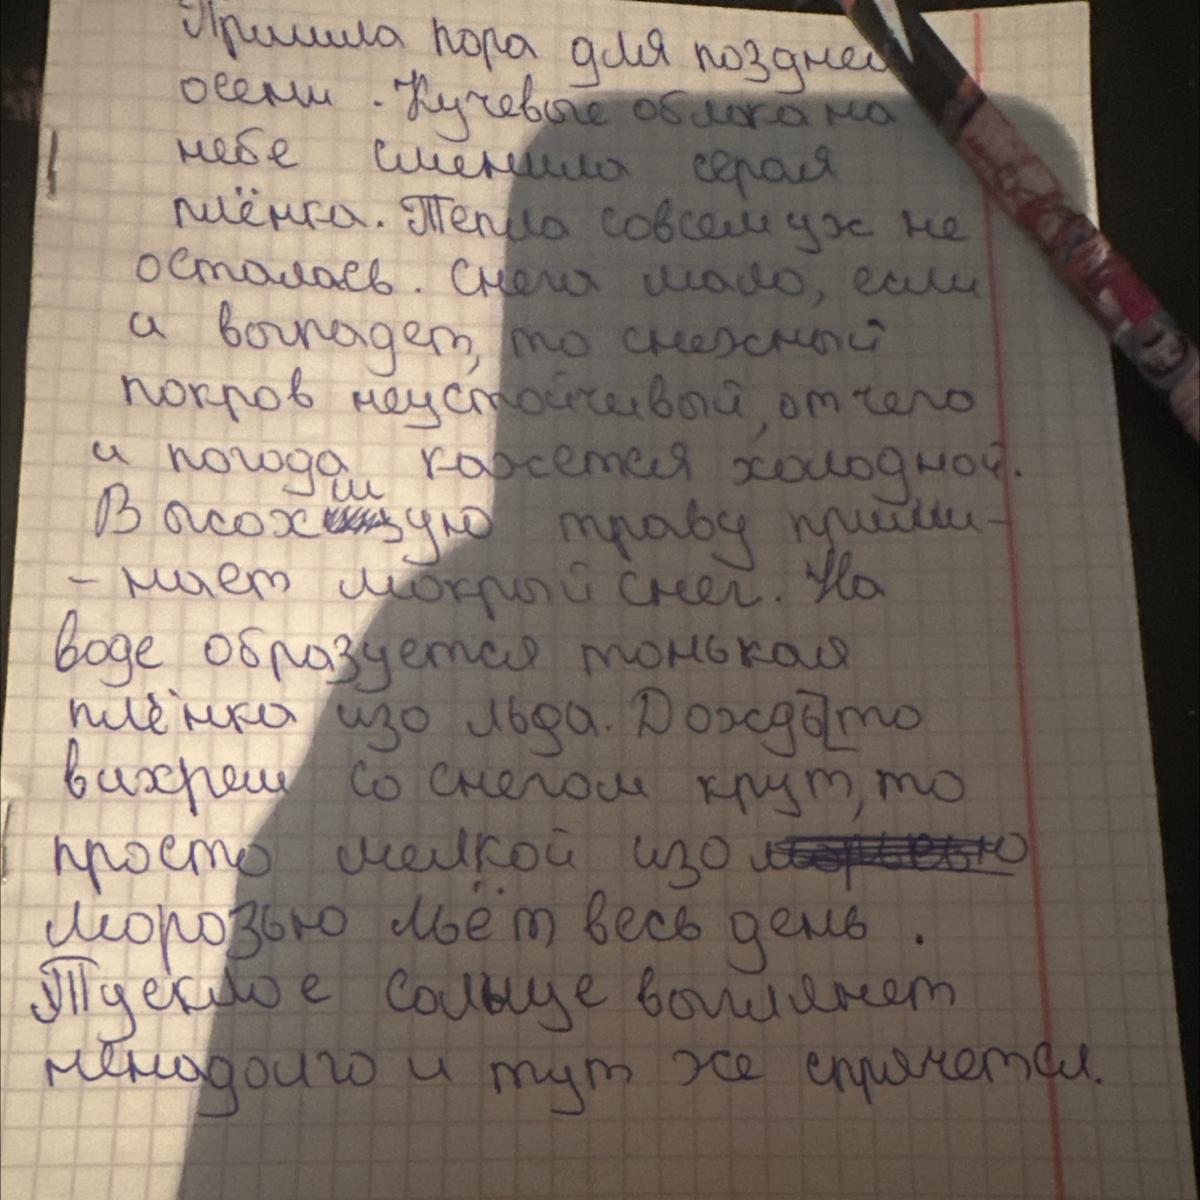 Пришла пора для поздней
осени. Кучевые облока на
небе сменила серая
плёнка. Тепла совсем уж не
осталась. Снега мало, если
и выпадет, то снежный
покров неустойчивый, отчего
и погода кажется холодной.
Высохшую траву прими-
-нает мокрый снег. На
воде образуется тонькая
плёнка изо льда. Дождь то
вихрем со снегом крут, то
просто мелкой изо
морозью льёт весь день.
Тусклое солнце выглянет
ненадолго и тут же спрячется.